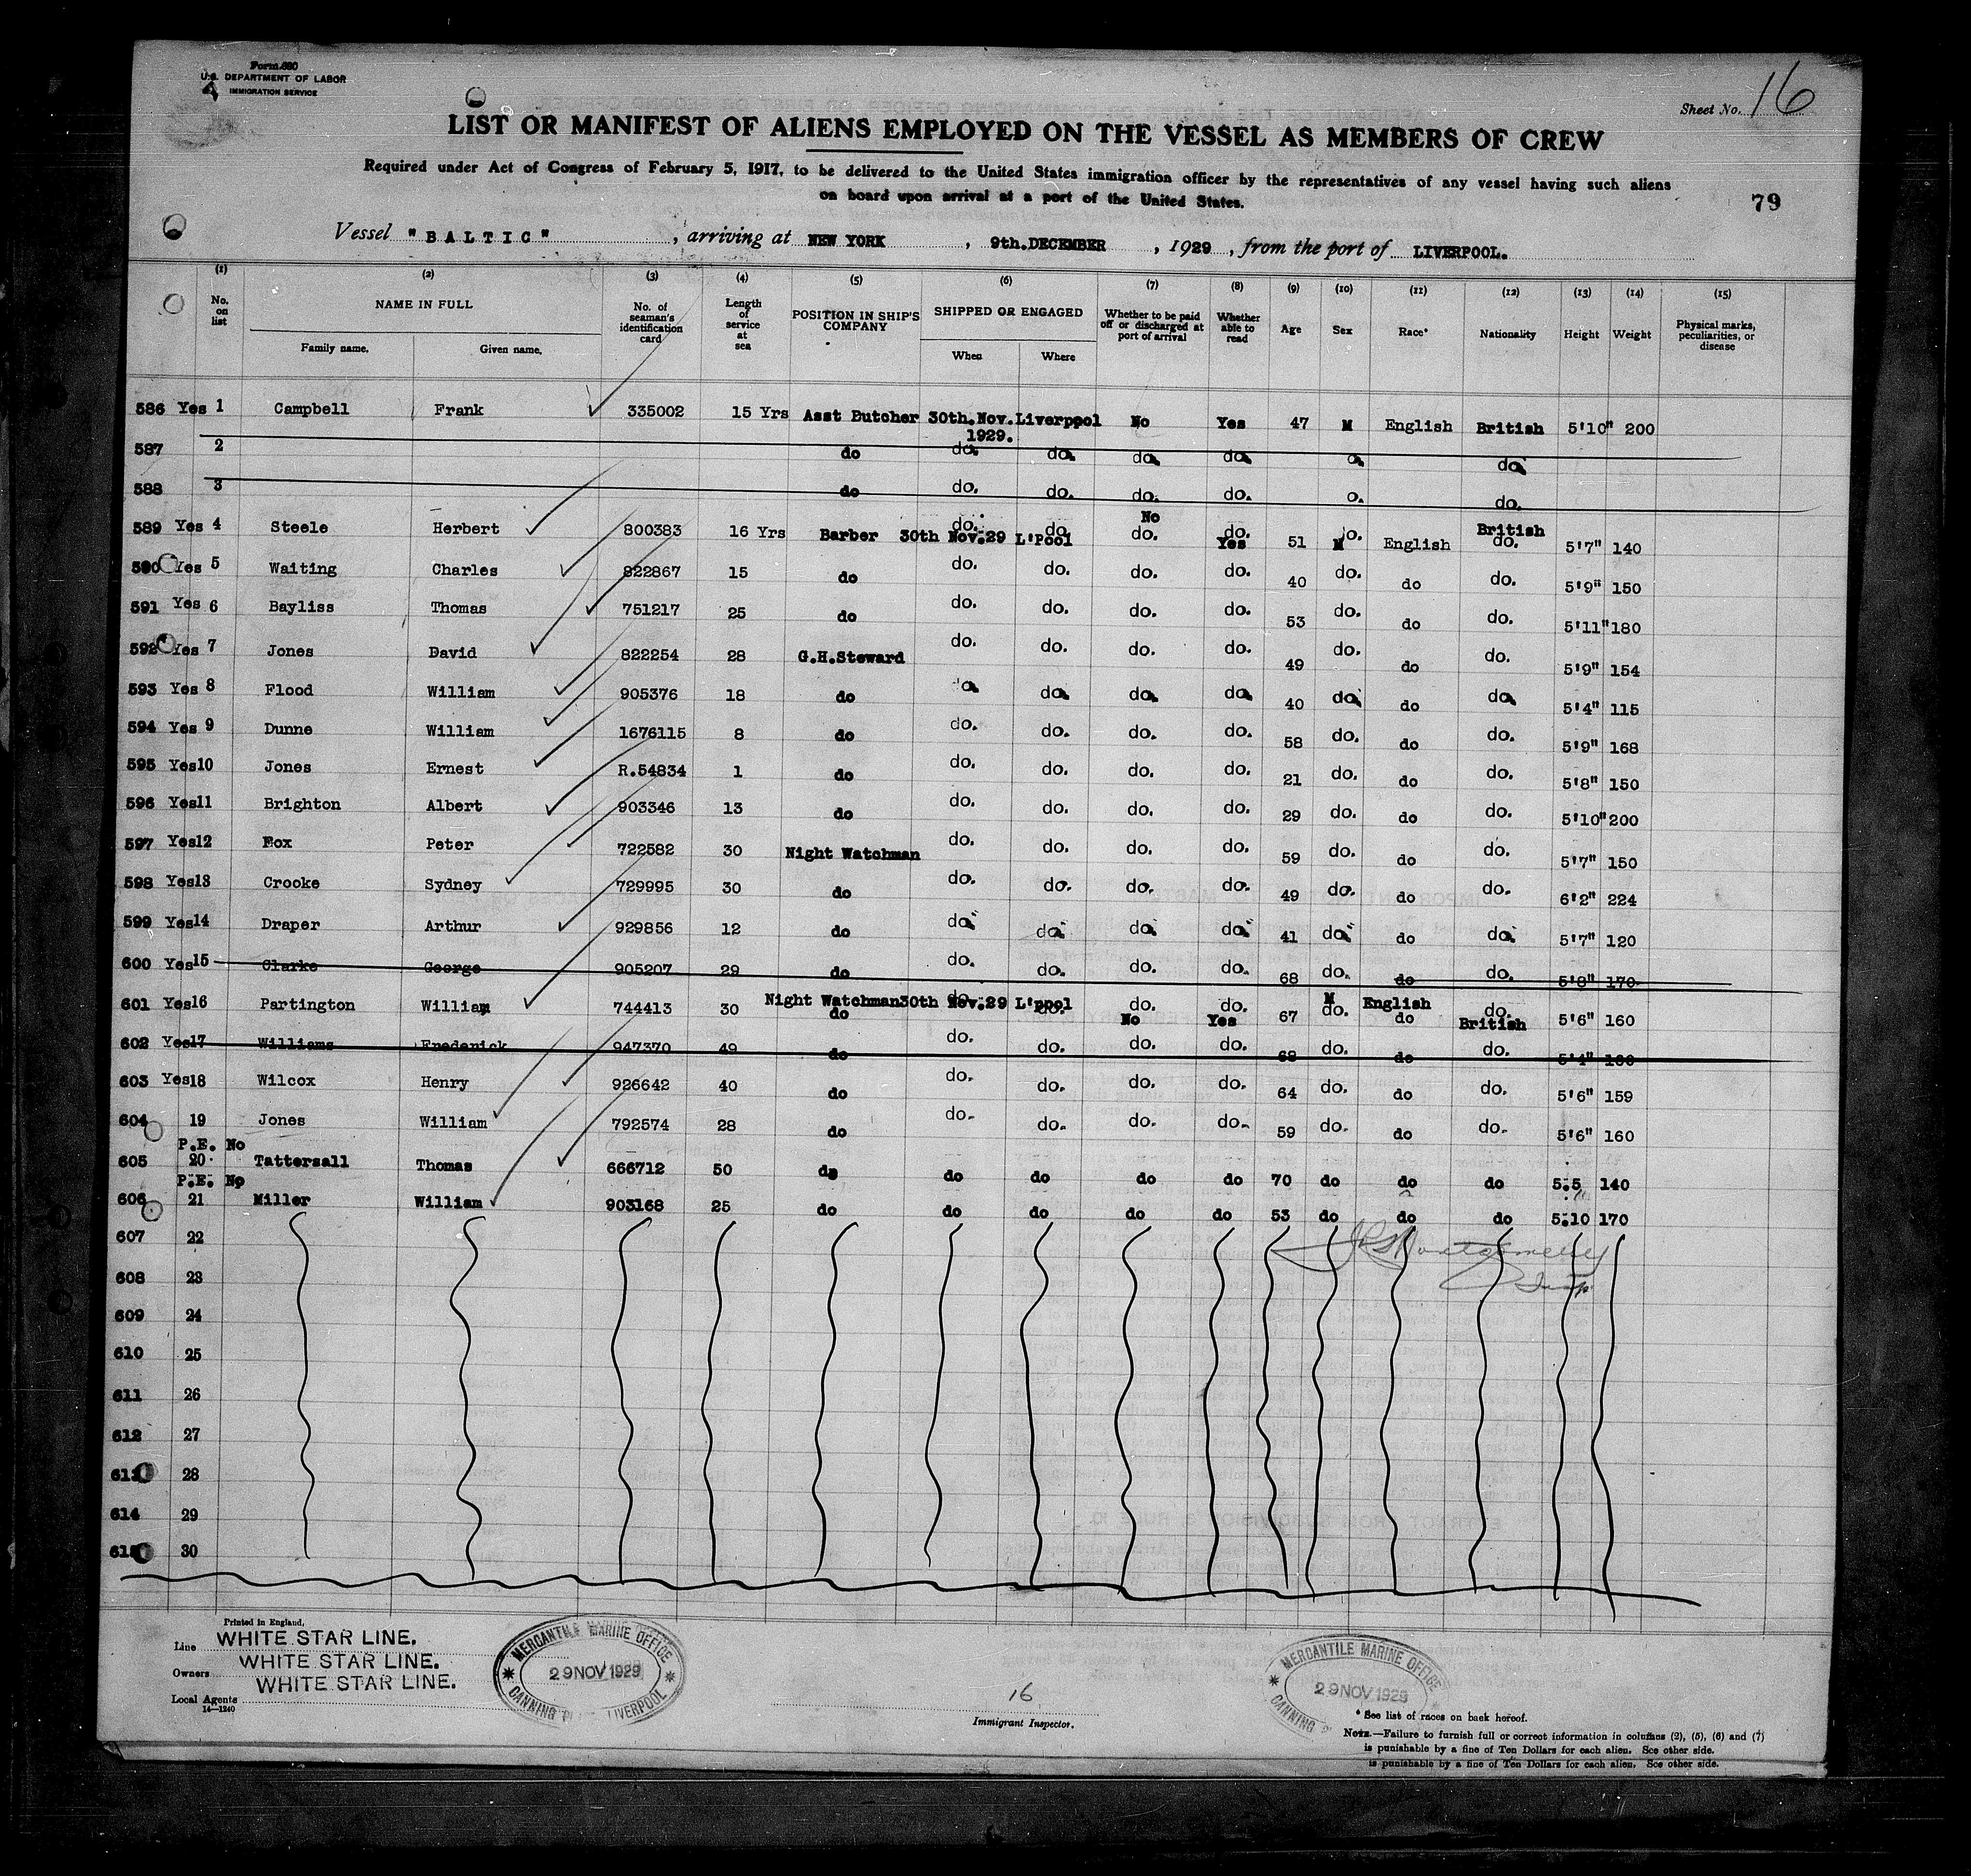 Form 680
U.S. DEPARTMENT OF LABOR
IMMIGRATION SERVICE
Sheet No. 16
LIST OR MANIFEST OF ALIENS EMPLOYED ON THE VESSEL AS MEMBERS OF CREW
Required under Act of Congress of February 5, 1917, to be delivered to the United States immigration officer by the representatives of any vessel having such aliens
on board upon arrival at a port of the United States.
79
Vessel "BALTIC", arriving at NEW YORK, 9th.DECEMBER, 1929, from the port of LIVERPOOL.
(1) (2) (3) (4) (5) (6) (7) (8) (9) (10) (11) (12) (13) (14) (15)
No. on list NAME IN FULL Family name. Given name. No. of seaman's identification card Length of service at sea POSITION IN SHIP'S COMPANY SHIPPED OR ENGAGED When Where Whether to be paid off or discharged at port of arrival Whether able to read Age Sex Race* Nationality Height Weight Physical marks, peculiarities, or disease
586 Yes 1 Campbell Frank 335002 15 Yrs Asst Butcher 30th.Nov. 1929. Liverpool No Yes 47 M English British 5'10" 200
587 2 do do. do. do. do. o. do.
588 3 do do. do. do. do. o. do.
589 Yes 4 Steele Herbert 800383 16 Yrs Barber 30th Nov.29 L'Pool No Yes 51 M English British 5'7" 140
590 Yes 5 Waiting Charles 822867 15 do do. do. do. do. 40 do. do do. 5'9" 150
591 Yes 6 Bayliss Thomas 751217 25 do do. do. do. do. 53 do. do do. 5'11" 180
592 Yes 7 Jones David 822254 28 G.H.Steward do. do. do. do. 49 do. do do. 5'9" 154
593 Yes 8 Flood William 905376 18 do do. do. do. do. 40 do. do do. 5'4" 115
594 Yes 9 Dunne William 1676115 8 do do. do. do. do. 58 do. do do. 5'9" 168
595 Yes10 Jones Ernest R.54834 1 do do. do. do. do. 21 do. do do. 5'8" 150
596 Yes11 Brighton Albert 903346 13 do do. do. do. do. 29 do. do do. 5'10" 200
597 Yes12 Fox Peter 722582 30 Night Watchman do. do. do. do. 59 do. do do. 5'7" 150
598 Yes13 Crooke Sydney 729995 30 do do. do. do. do. 49 do. do do. 6'2" 224
599 Yes14 Draper Arthur 929856 12 do do. do. do. do. 41 do. do do. 5'7" 120
600 Yes15 Clarke George 905207 29 do do. do. do. do. 68 do. do do. 5'8" 170
601 Yes16 Partington William 744413 30 Night Watchman 30th Nov.29 L'pool No Yes 67 M English British 5'6" 160
602 Yes17 Williams Frederick 947370 49 do do. do. do. do. 68 do. do do. 5'4"
603 Yes18 Wilcox Henry 926642 40 do do. do. do. do. 64 do. do do. 5'6" 159
604 19 Jones William 792574 28 do do. do. do. do. 59 do. do do. 5'6" 160
P.E. No
605 20 Tattersall Thomas 666712 50 do do do do do 70 do do do 5.5 140
P.E. No
606 21 Miller William 903168 25 do do do do do 53 do do do 5.10 170
607 22
J Montgomery
608 23
609 24
610 25
611 26
612 27
613 28
614 29
615 30
Printed in England.
Line WHITE STAR LINE.
Owners WHITE STAR LINE.
Local Agents WHITE STAR LINE.
14—1240
MERCANTILE MARINE OFFICE
29 NOV 1929
CANNING PLACE LIVERPOOL
16
Immigrant Inspector.
MERCANTILE MARINE OFFICE
29 NOV 1929
CANNING
* See list of races on back hereof.
NOTE.—Failure to furnish full or correct information in columns (2), (5), (6) and (7)
is punishable by a fine of Ten Dollars for each alien. See other side.
is punishable by a fine of Ten Dollars for each alien. See other side.